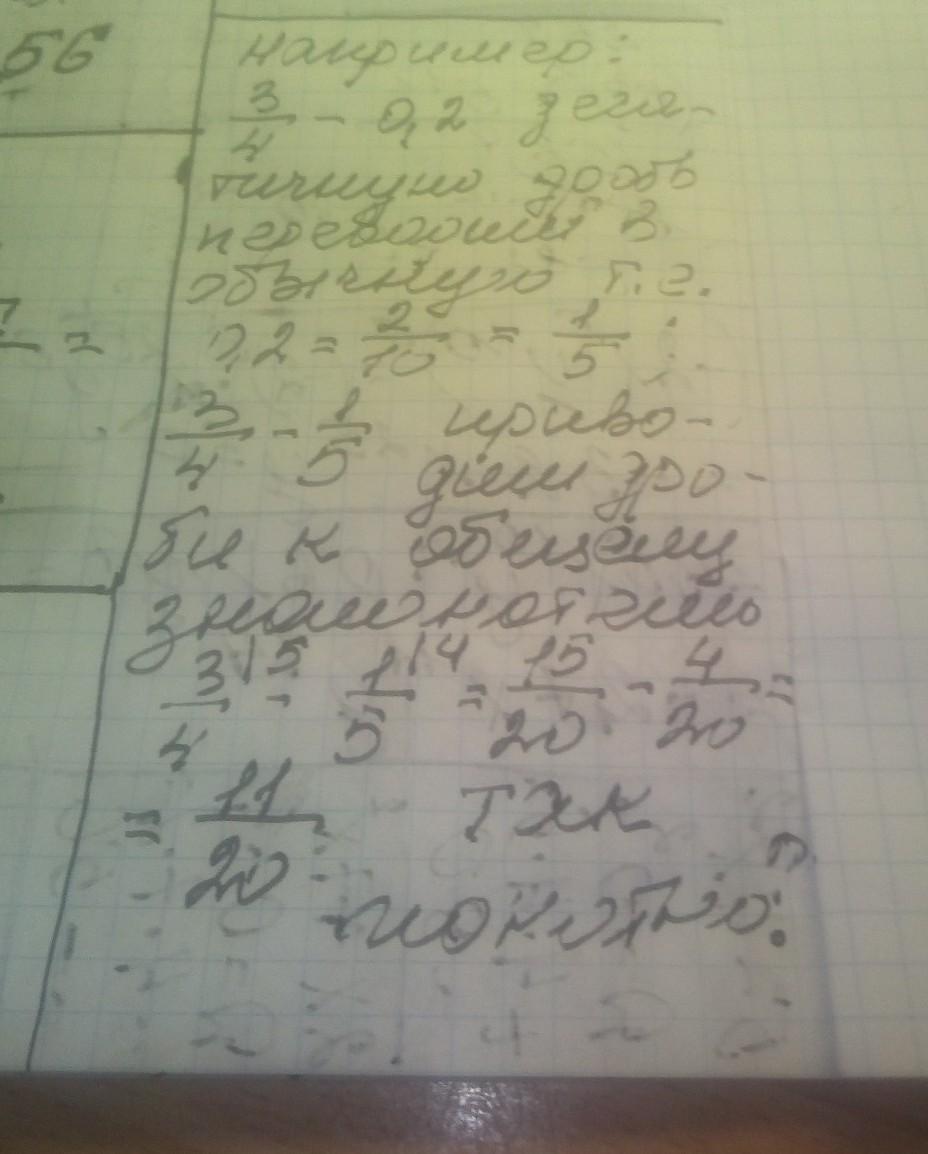 56
например:
3/4 - 0,2 деся-
тичную дробь
переводим в
обычную т.е.
=
0,2 = 2/10 = 1/5;
3/4 - 1/5 приво-
дим дро-
би к общему
знаменателю
3/4 |5 - 1/5 |4 = 15/20 - 4/20 =
= 11/20 так
понятно?